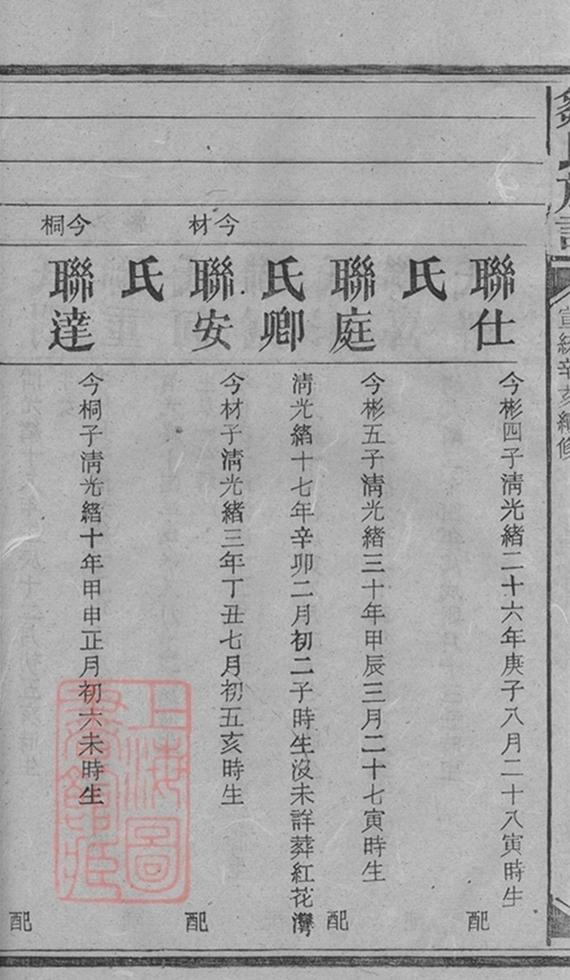 鄒氏族譜
宣統辛亥續修
聯仕
今彬四子清光緒二十六年庚子八月二十八寅時生
配
氏
聯庭
今彬五子清光緒三十年甲辰三月二十七寅時生
配
氏卿
清光緒十七年辛卯二月初二子時生沒未詳葬紅花灣
今材
聯安
今材子清光緒三年丁丑七月初五亥時生
配
氏
今桐
聯達
今桐子清光緒十年甲申正月初六未時生
配
上海圖書館藏